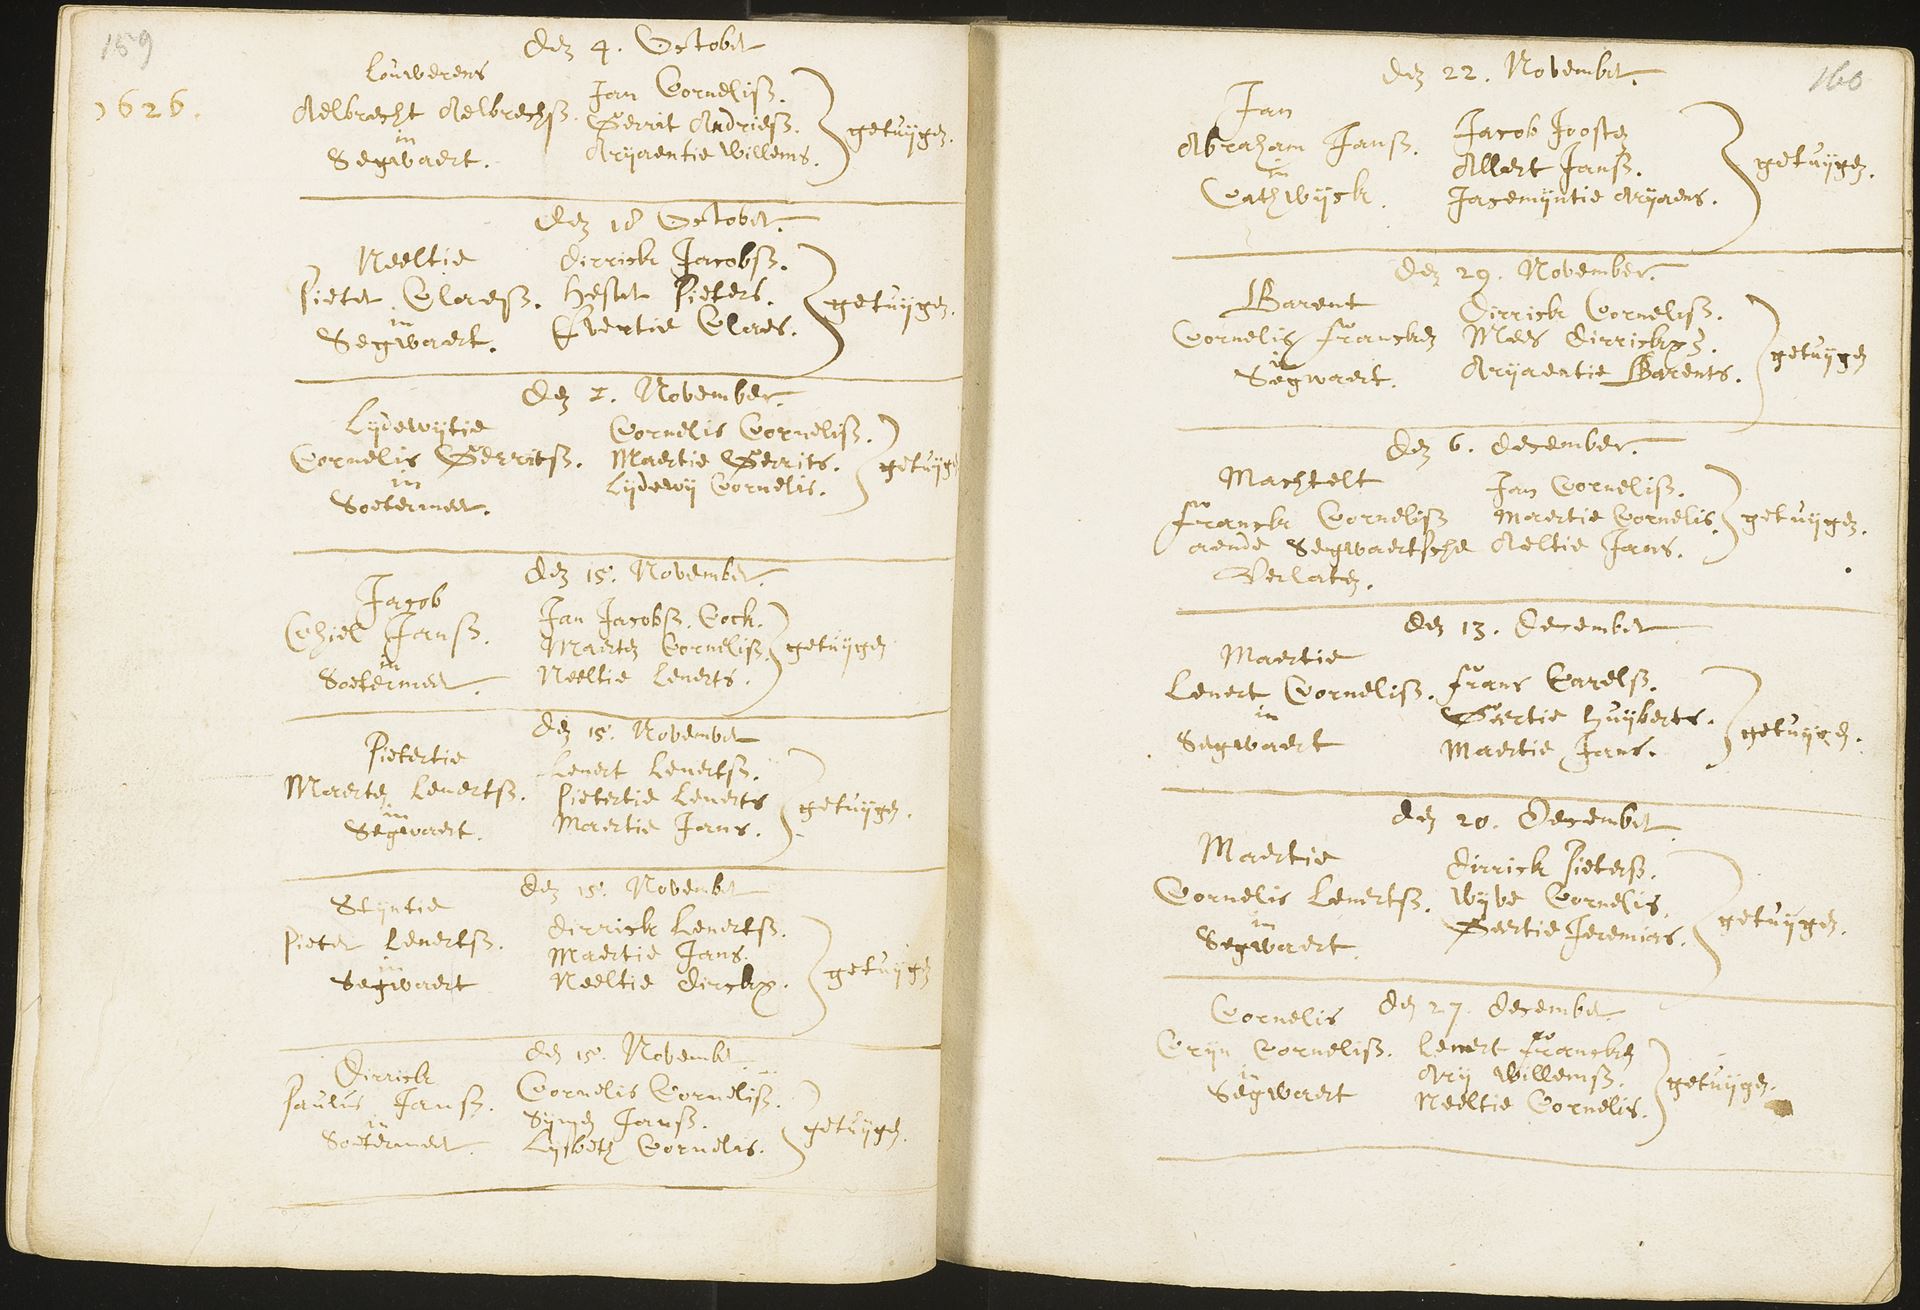 159
1626.
den 4. October
Louwerens
Aelbrecht Aelbrechsz.
in
Segwaert.
Jan Cornelisz.
Gerrit Andriesz.
Aryaentie Willems.
getuygen.
den 18 October.
Neeltie
Pieter Claesz.
in
Segwaert.
Dirrick Jacobsz.
Hester Pieters.
Evertie Claes.
getuygen.
den 1. November.
Lydewytie
Cornelis Gerritsz.
in
Soetermeer.
Cornelis Cornelisz.
Maertie Gerrits.
Lydewy Cornelis.
getuyge
den 15. November.
Jacob
Chiel Jansz.
in
Soetermeer.
Jan Jacobsz. Cock.
Maerten Cornelisz.
Neeltie Lenerts.
getuygen
den 15. November
Pietertie
Maerten Lenertsz.
in
Segwaert.
Lenert Lenertsz.
Pietertie Lenerts
Maertie Jans.
getuygen.
den 15. November
Styntie
Pieter Lenertsz.
in
Segwaert
Dirrick Lenertsz.
Maertie Jans.
Neeltie Dircks.
getuygen
den 15. November
Dirrick
Paulus Jansz.
in
Soetermeer.
Cornelis Cornelisz.
Symen Jansz.
Lysbeth Cornelis.
getuygen.
160
den 22. November.
Jan
Abraham Jansz.
in
Cathwyck.
Jacob Joosten
Allert Jansz.
Jacemyntie Aryaens.
getuygen.
den 29. November.
Barent
Cornelis Francken
in
Segwaert.
Dirrick Cornelisz.
Mees Dirricksz.
Aryaentie Barents.
getuygen
den 6. december.
Machtelt
Franck Cornelisz
aende Segwaertsche
Verlaten.
Jan Cornelisz.
Maertie Cornelis.
Aeltie Jans.
getuygen.
den 13. december
Maertie
Lenert Cornelisz.
in
Segwaert
Frans Carelsz.
Geertie Huyberts.
Maertie Jans.
getuygen.
den 20. December
Maertie
Cornelis Lenertsz.
in
Segwaert.
Dirrick Pietersz.
Wyve Cornelis.
Geertie Jeremias.
getuygen.
den 27. december
Cornelis
Cryn Cornelisz.
in
Segwaert
Lenert Francken
Ary Willemsz.
Neeltie Cornelis.
getuygen.